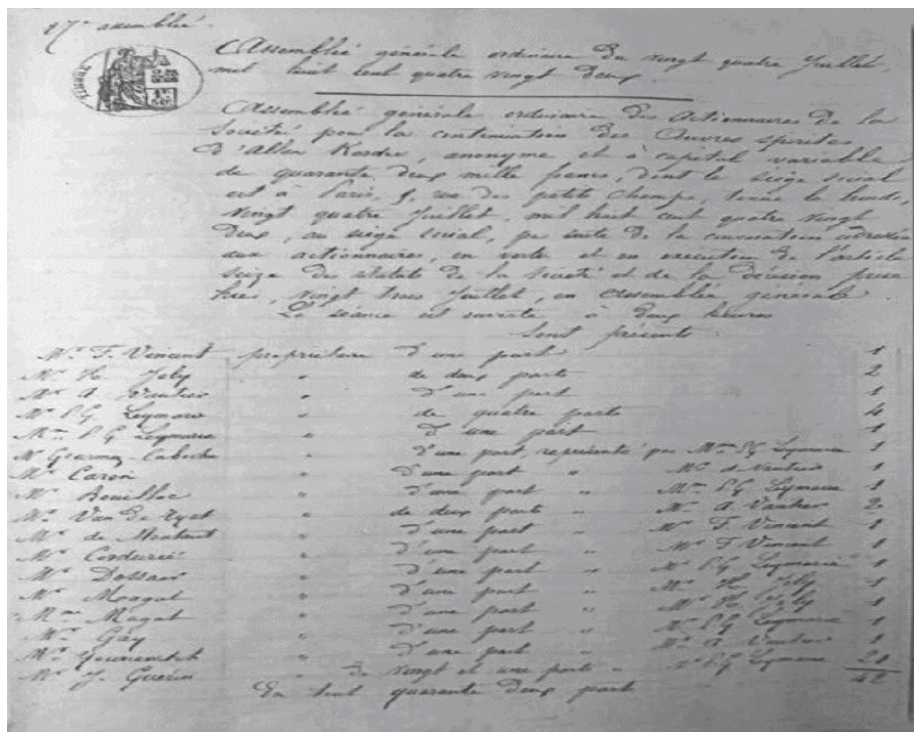 17e assemblée.
Assemblée générale ordinaire du vingt quatre Juillet,
mil huit cent quatre vingt deux.
Assemblée générale ordinaire des Actionnaires de la
Société pour la continuation des Œuvres spirites
d'Allan Kardec, anonyme et à capital variable
de quarante deux mille francs, dont le siège social
est à Paris, 5, rue des petits Champs, tenue le lundi,
vingt quatre Juillet, mil huit cent quatre vingt
deux, au siège social, par suite de la convocation adressée
aux actionnaires, en vertu et en exécution de l'article
seize des statuts de la Société et de la décision prise
hier, vingt trois Juillet, en Assemblée générale
La séance est ouverte à deux heures
Sont présents
Mr F. Vincent propriétaire d'une part 1
Mr H. Joly " de deux parts 2
Mr A. Vautier " d'une part 1
Mr P G Leymarie " de quatre parts 4
Mme P G Leymarie " d'une part 1
d'une part, représenté par Mme P G Leymarie 1
Mr Caron " d'une part " Mr A. Vautier 1
Mr Bouillac " d'une part " Mme P G Leymarie 1
Mr " de deux parts " Mr A. Vautier 2
Mr de " d'une part " Mr F. Vincent 1
Mr Cordurié " d'une part " Mr F Vincent 1
Mr " d'une part " Mr P G Leymarie 1
Mr " d'une part " Mr H. Joly 1
Mme " d'une part " Mr H. Joly 1
Mr Gay " d'une part " Mr P G Leymarie 1
Mr " d'une part " Mr A. Vautier 1
Mr J. Guérin " de vingt et une parts " Mr P G Leymarie 21
En tout quarante deux parts 42